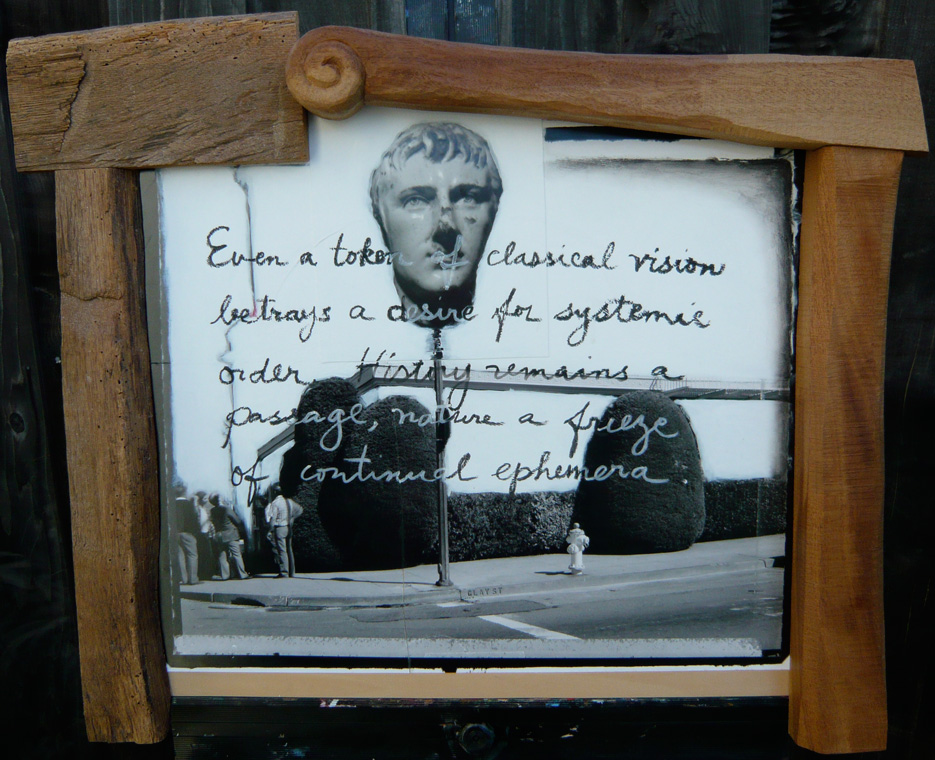 Even a token of classical vision
betrays a desire for systemic
order. History remains a
passage, nature a frieze
of continual ephemera
CLAY ST